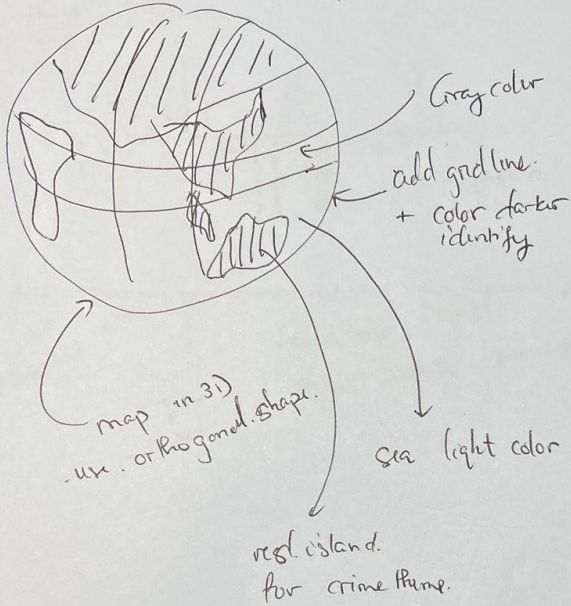 Gray color
add gridline.
+ color darker
identify
map in 3D
. use . orthogonal . shape.
sea light color
island.
for crime theme.